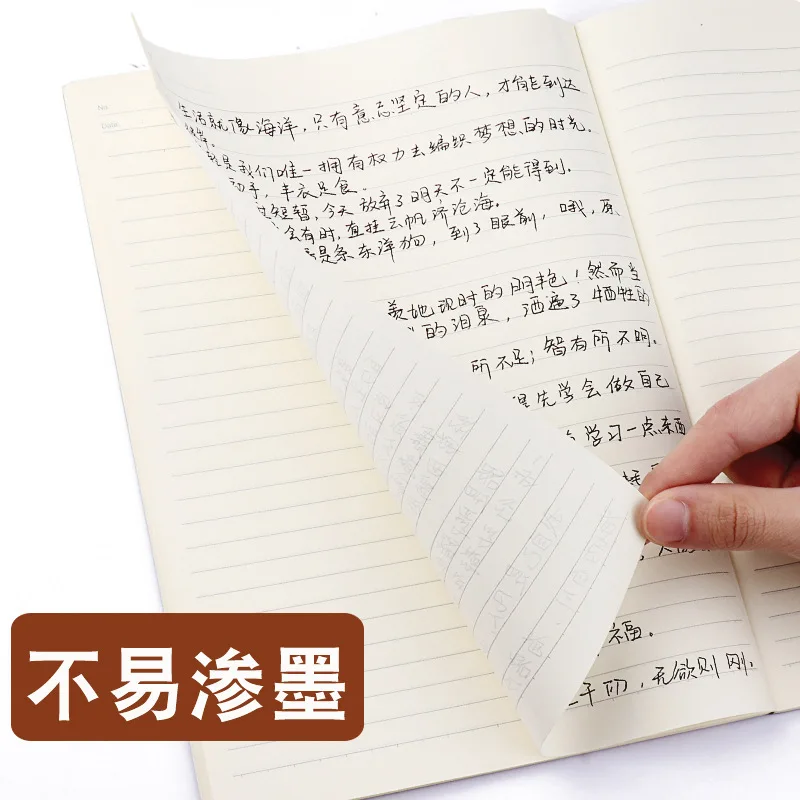 No
Date
生活就像海洋，只有意志坚定的人，才能到达
是我们唯一拥有权力去编织梦想的时光。
动手，丰衣足食。
短暂，今天放弃了明天不一定能得到。
会有时，直挂云帆济沧海。
是条东洋狗，到了眼前，哦，原
羡她现时的明艳！然而当
的泪泉，洒遍了牺牲的
所不足；智有所不明。
得先学会做自己
学习一点东西
福。
千仞，无欲则刚。
不易渗墨